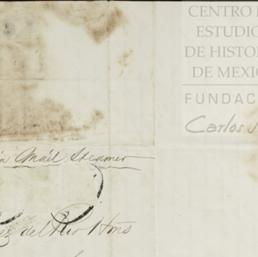 CENTRO
ESTUDIO
DE HISTOR
DE MEXIC
FUNDAC
Carlos
Mail Steamer
del Rio Hnos